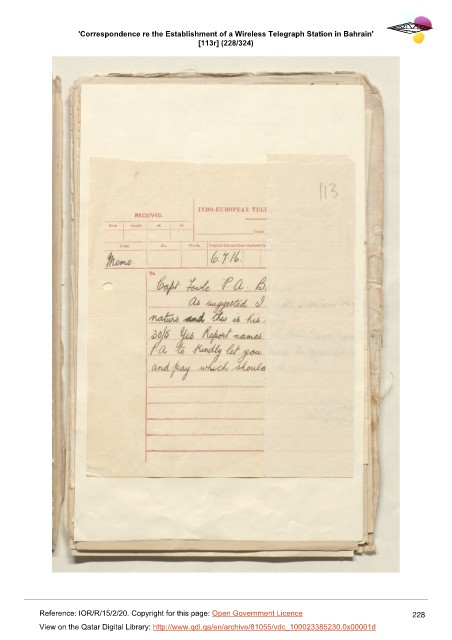 'Correspondence re the Establishment of a Wireless Telegraph Station in Bahrain'
[113r] (228/324)
113
RECEIVED.
INDO-EUROPEAN TELE
From
No.
Words.
Memo.
6.7.16.
To
Capt Fowle P. A. B
As suggested I
nature and this is his
30/5 Yes Report names
P.A to kindly let you
and pay which should
Reference: IOR/R/15/2/20. Copyright for this page: Open Government Licence
228
View on the Qatar Digital Library: http://www.qdl.qa/en/archive/81055/vdc_100023385230.0x00001d